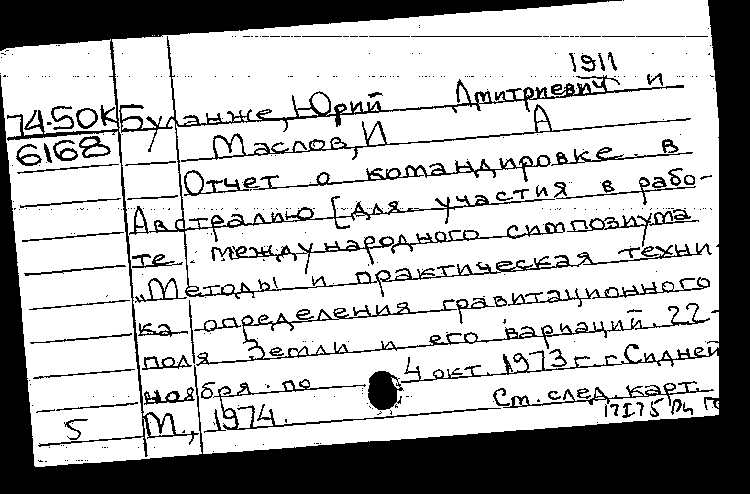 1911
74-50К Буланже, Юрий Дмитриевич и
6168 Маслов, И А
Отчет о командировке в
Австралию [для участия в рабо-
те международного симпозиума
„Методы и практическая техни-
ка определения гравитационного
поля Земли и его вариаций. 22-
ноября по 4 окт. 1973 г. г. Сидней
М., 1974. Ст. след. карт.
5